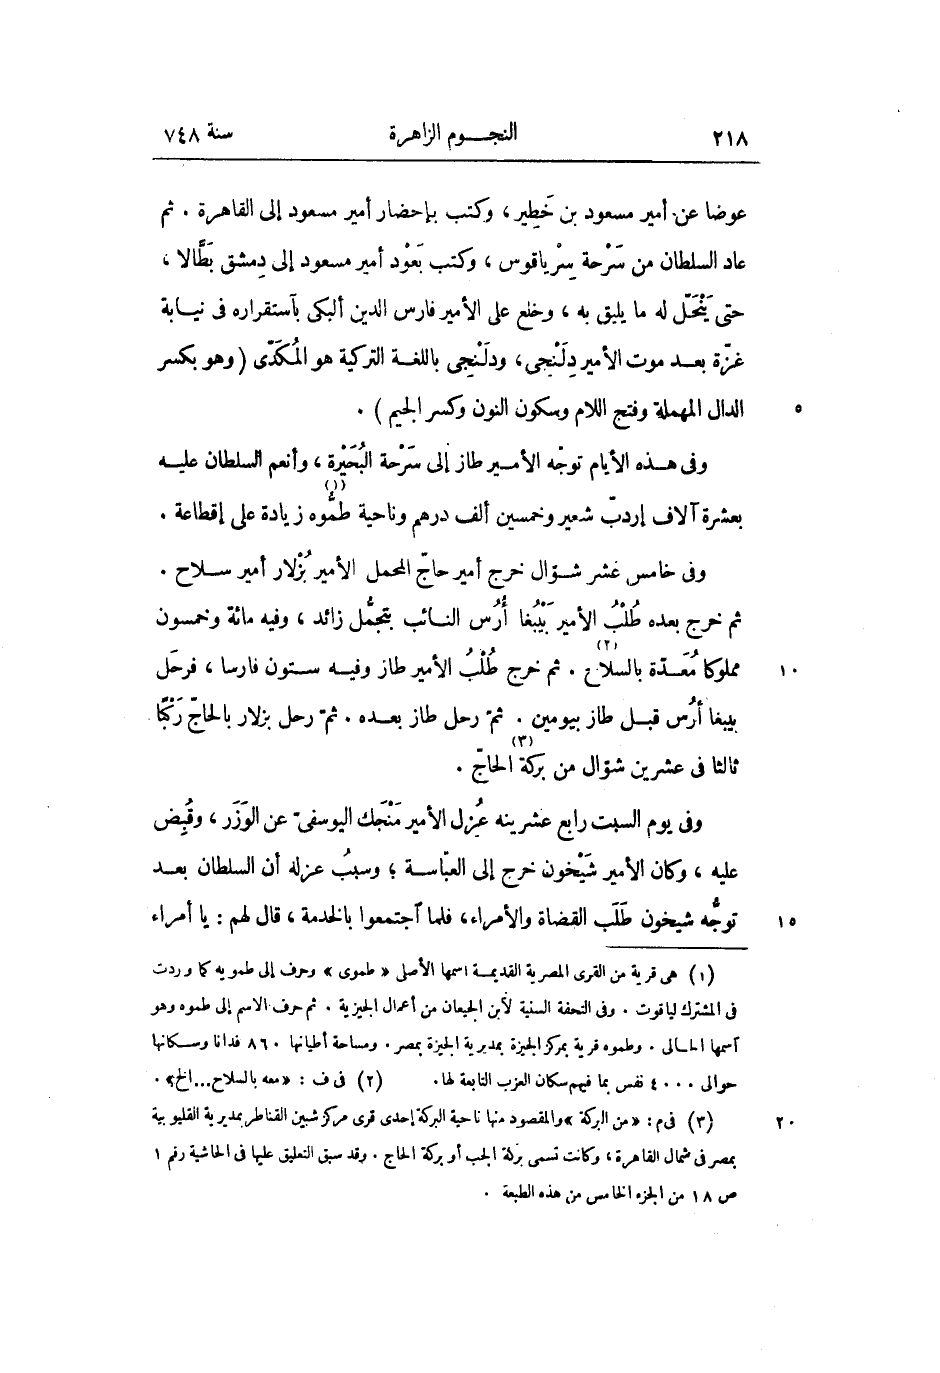 ٢١٨ النجـوم الزاهرة سنة ٧٤٨
عوضا عن أمير مسعود بن خَطِير ، وكتب بإحضار أمير مسعود إلى القاهرة . ثم
عاد السلطان من سَرْحة سِرْياقوس ، وكتب بَعوْد أمير مسعود إلى دِمشق بَطَّالا ،
حتى يَنْحَلّ له ما يليق به ، وخلع على الأمير فارس الدين ألبكى بآستقراره فى نيابة
غزّة بعد موت الأمير دِلَنْجِى، ودلَنْجِى باللغة التركية هو المُكَدّى (وهو بكسر
الدال المهملة وفتح اللام وسكون النون وكسر الجيم ) . ٥
وفى هذه الأيام توجّه الأمير طاز إلى سَرْحة البُحَيْرة ، وأنعم السلطان عليه
بعشرة آلاف إردبّ شعير وخمسين ألف درهم وناحية طمُّوه (١) زيادة على إقطاعة .
وفى خامس عشر شوّال خرج أمير حاجّ المحمل الأمير بُزْلار أمير سلاح .
ثم خرج بعده طُلْبُ الأمير بَيْبُغا أُرُس النائب بتجمُّل زائد ، وفيه مائة وخمسون
مملوكا مُعَدّة بالسلاح (٢) . ثم خرج طُلْبُ الأمير طاز وفيه ستون فارسا ، فرحَل ١٠
بيبغا أُرُس قبل طاز بيومين . ثم رحل طاز بعده . ثم رحل بزلار بالحاجّ رَكْبًا
ثالثا فى عشرين شوّال من بركة الحاجّ (٣) .
وفى يوم السبت رابع عشرينه عُزِل الأمير مَنْجَك اليوسفىّ عن الوَزَر ، وقُبِض
عليه ، وكان الأمير شَيْخون خرج إلى العبّاسة ؛ وسببُ عزله أن السلطان بعد
توجُّه شيخون طَلَب القضاة والأمراء، فلما آجتمعوا بالخدمة ، قال لهم : يا أمراء ١٥
(١) هى قرية من القرى المصرية القديمة اسمها الأصلى « طموى » وحرف إلى طمويه كما وردت
فى المشترك لياقوت . وفى التحفة السنية لأبن الجيعان من أعمال الجيزية . ثم حرف الاسم إلى طموه وهو
آسمها الحالى . وطموه قرية بمركز الجيزة بمديرية الجيزة بمصر . ومساحة أطيانها ٨٦٠ فدانا وسكانها
حوالى ٤٠٠٠ نفس بما فيهم سكان العزب التابعة لها. (٢) فى ف : «معه بالسلاح...الخ» .
(٣) فى م : «من البركة» والمقصود منها ناحية البركة إحدى قرى مركز شبين القناطر بمديرية القليوبية ٢٠
بمصر فى شمال القاهرة ، وكانت تسمى بركة الجب أو بركة الحاج . وقد سبق التعليق عليها فى الحاشية رقم ١
ص ١٨ من الجزء الخامس من هذه الطبعة .